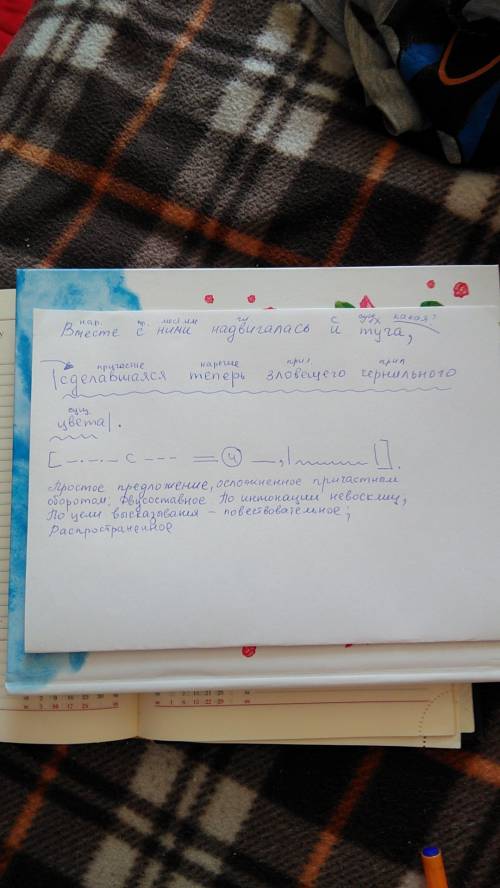 нар. пр. мест.им гл с сущ. X какая?
Вместе с ними надвигалась и туча,
причастие наречие прил прил
сделавшаяся теперь зловещего чернильного
сущ
цвета.
[ — . — . — с — — — = (и) —, |~~~~~| ].
Простое предложение, осложненное причастным
оборотом, двусоставное. По интонации невосклиц,
По цели высказывания - повествовательное;
Распространенное